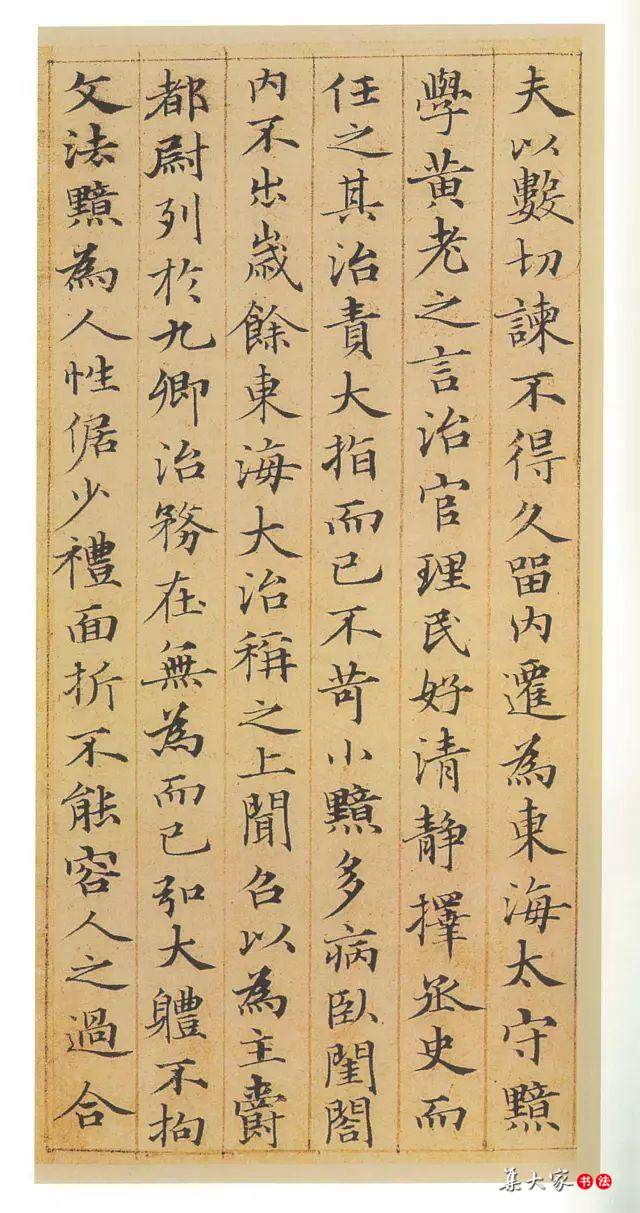 夫以數切諫不得久留內遷為東海太守黯
學黃老之言治官理民好清靜擇丞史而
任之其治責大指而已不苛小黯多病臥閨閤
內不出歲餘東海大治稱之上聞召以為主爵
都尉列於九卿治務在無為而已弘大體不拘
文法黯為人性倨少禮面折不能容人之過合
集大家书法